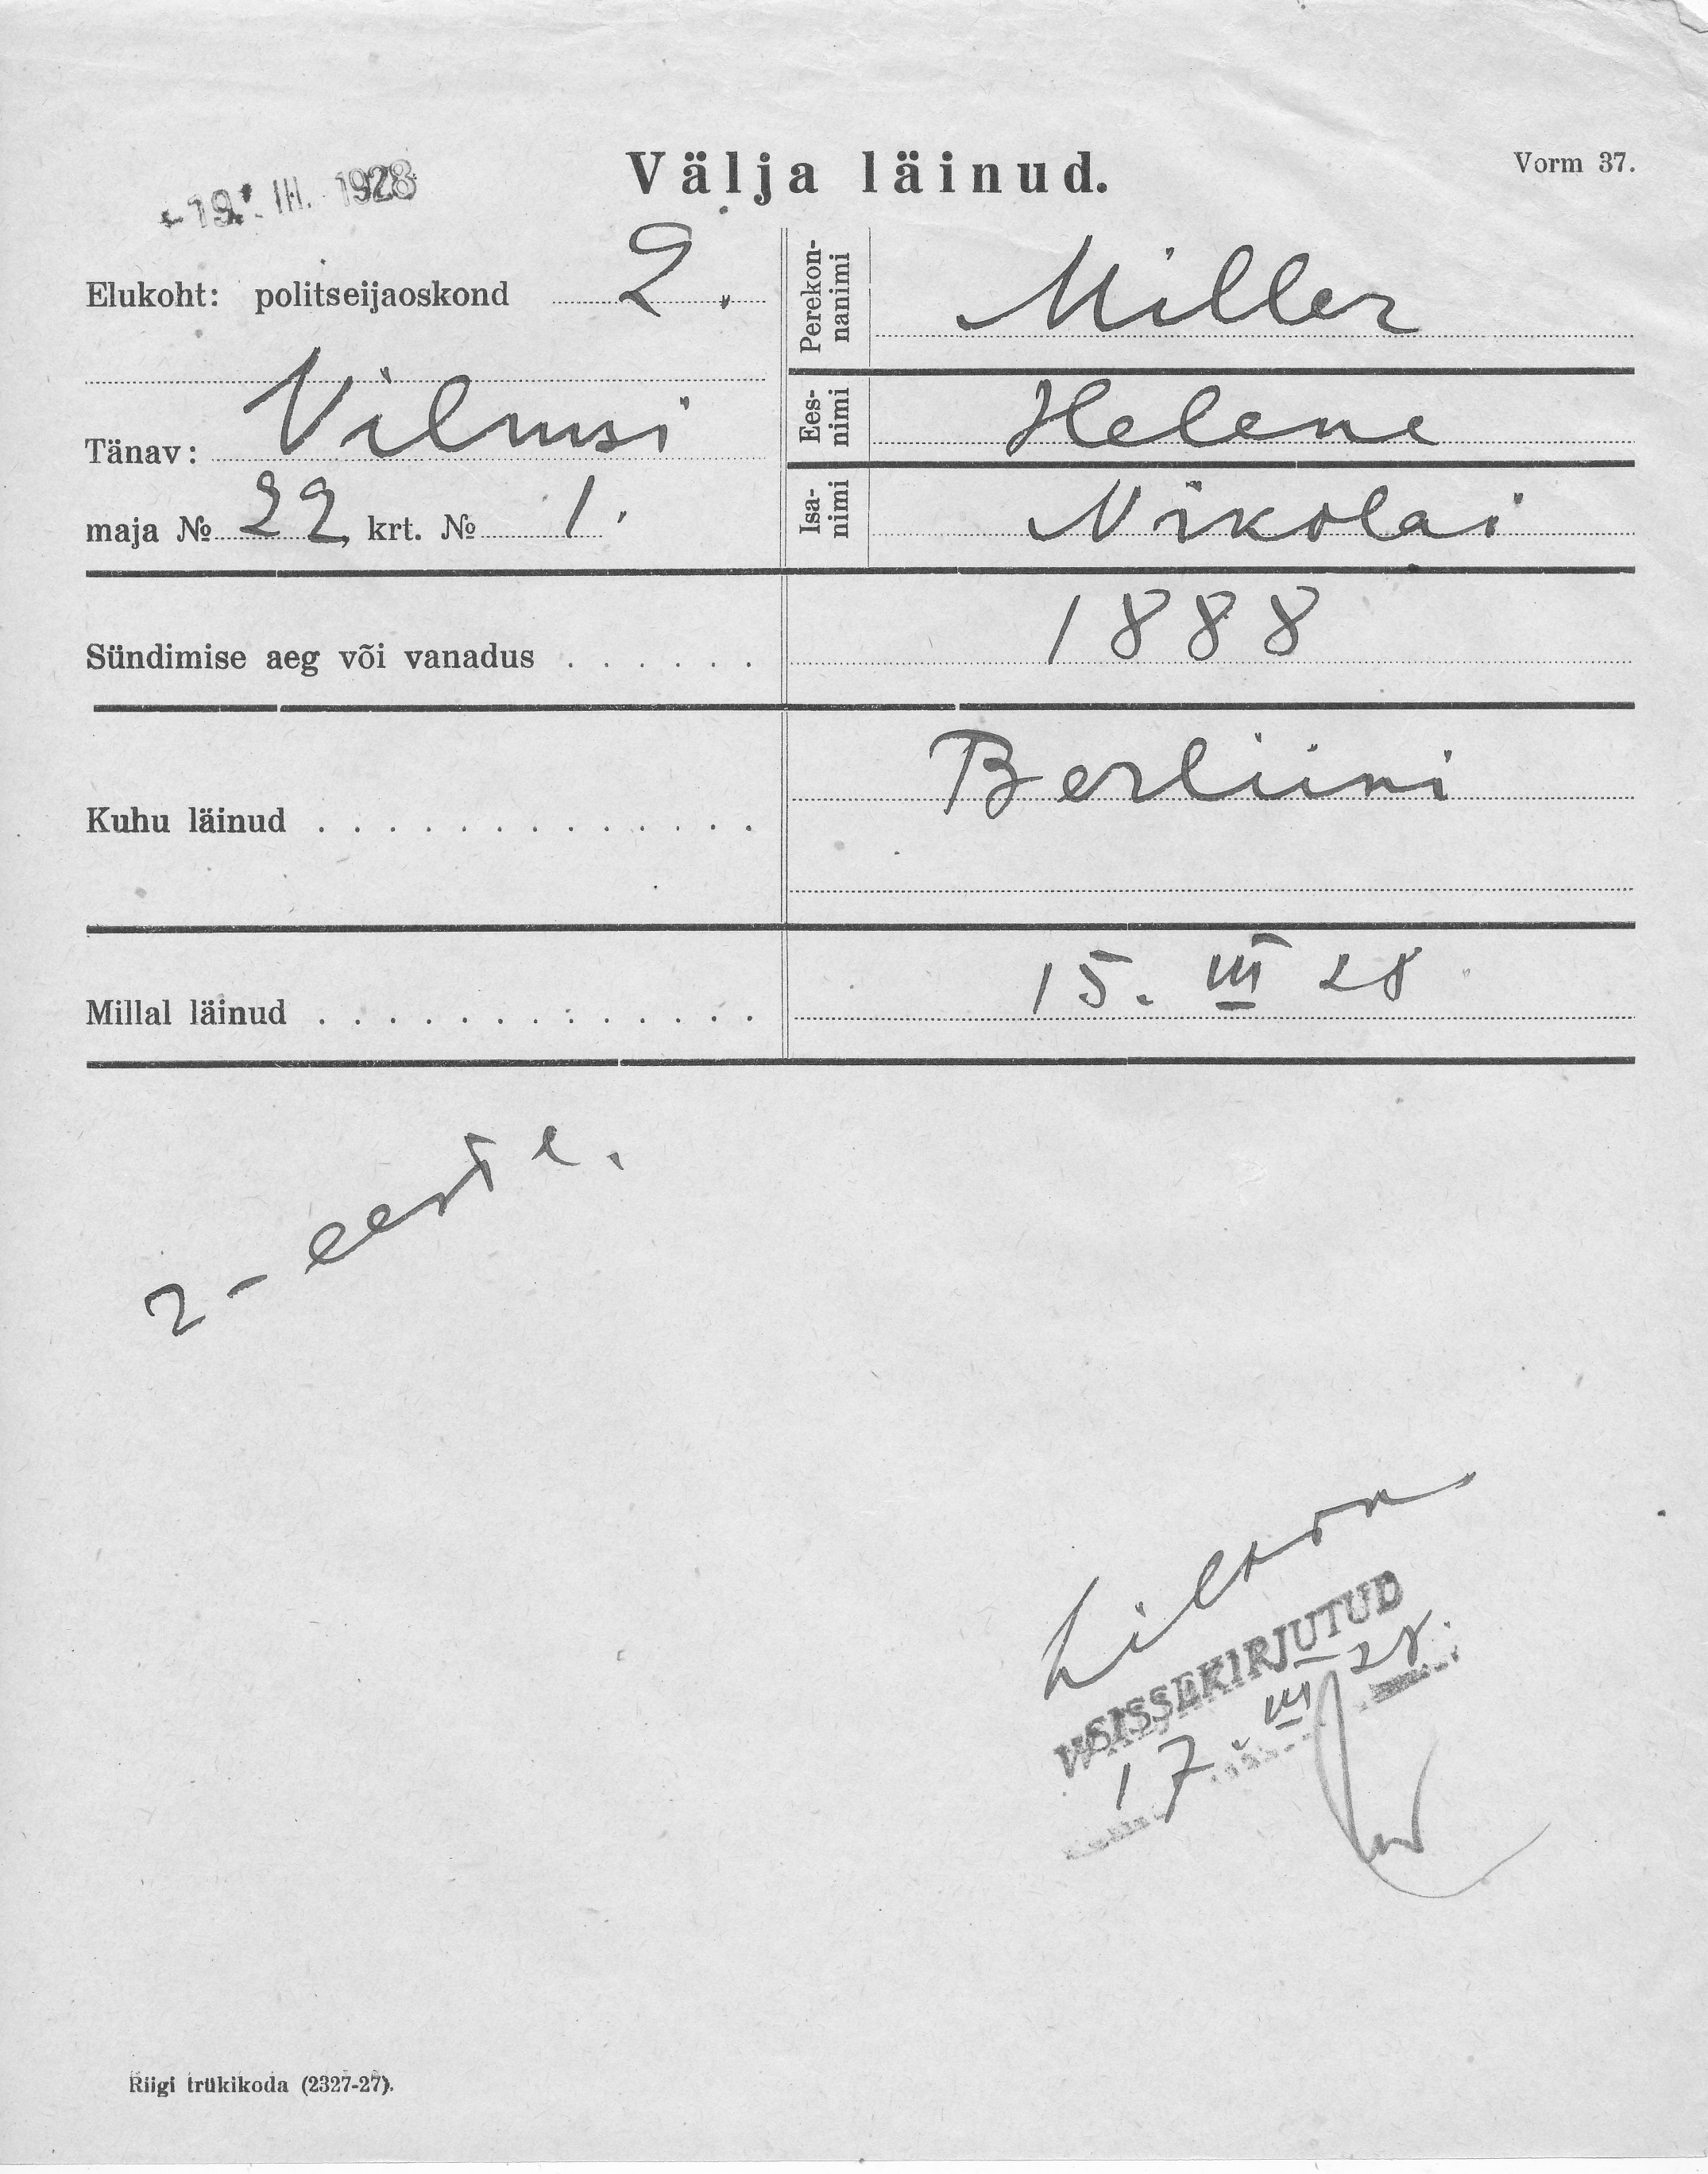 Välja läinud.
Vorm 37.
19. III. 1928
Elukoht: politseijaoskond 2.
Tänav: Vilmsi
maja № 22 krt. № 1.
Perekon-
nanimi Miller
Ees-
nimi Helene
Isa-
nimi Nikolai
Sündimise aeg või vanadus . . . . . . 1888
Kuhu läinud . . . . . . . . . . . . . Berliini
Millal läinud . . . . . . . . . . . . . 15. III 28
2 – eestl.
SISSEKIRJUTUD
17. III 28.
Riigi trükikoda (2327-27).